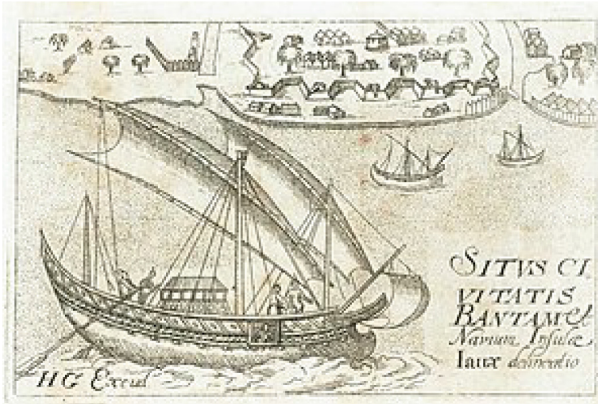 SITVS CI
VITATIS
BANTAM &
Navium Insulæ
Iauæ delineatio
HG Excud